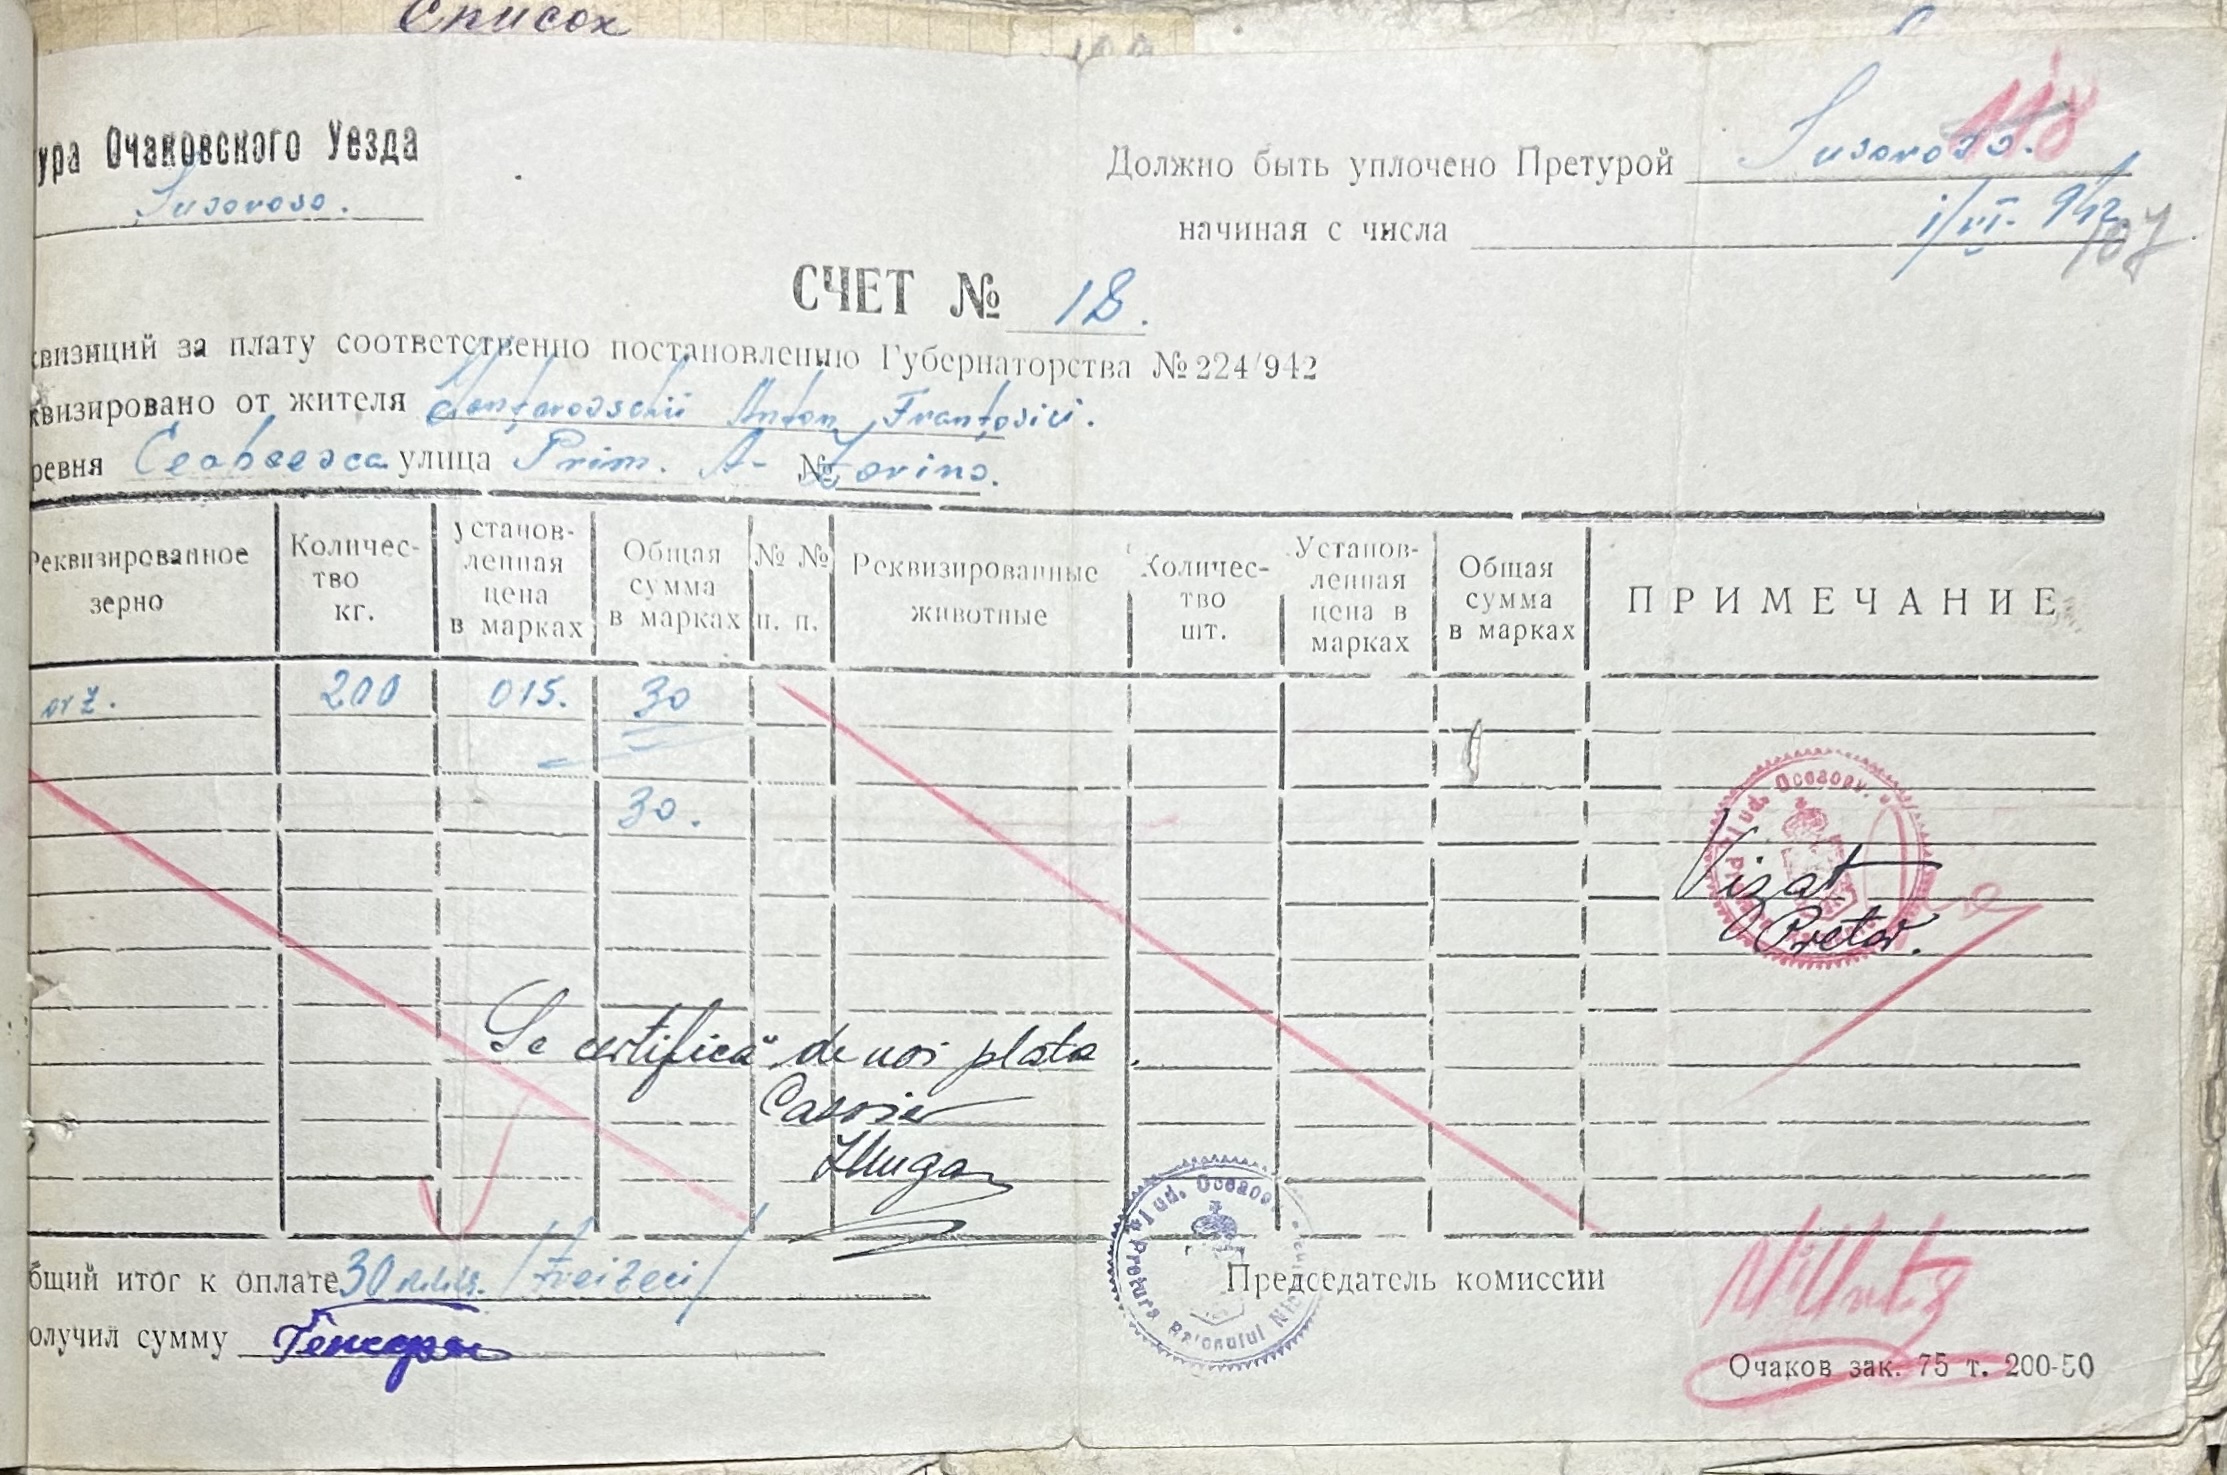 Список
ура Очаковского Уезда
Suvorovo.
Должно быть уплочено Претурой Suvorovo.
118
начиная с числа 1/VI. 942
107
СЧЕТ № 18.
квизиций за плату соответственно постановлению Губернаторства № 224/942
квизировано от жителя Anton Franțovici.
ревня улица Prim. A- №
Реквизированное зерно
Количес-тво кг.
установ-ленная цена в марках
Общая сумма в марках
№ № п. п.
Реквизированные животные
Количес-тво шт.
Установ-ленная цена в марках
Общая сумма в марках
ПРИМЕЧАНИЕ
orz. 200 015. 30
30.
Jud. Oceacov.
Vizat
Pretor.
Se certifică de noi plata
Casier
Jud. Oceacov
Pretura Raionului
бщий итог к оплате 30 /treizeci/
Председатель комиссии
олучил сумму
Очаков зак. 75 т. 200-50